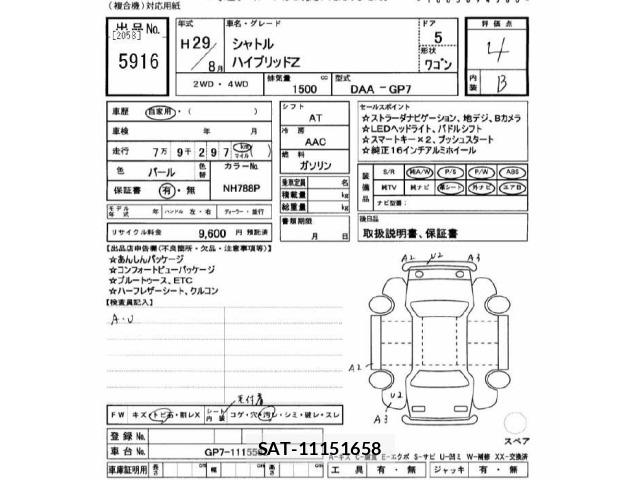 (複合機)対応用紙
出品No.
[2058]
5916
年式
H29/
8月
車名・グレード
シャトル
ハイブリッドZ
ドア
5
形状
ワゴン
評価点
4
内装
B
2WD・4WD
排気量
1500
cc
型式
DAA-GP7
車歴
自家用・( )
車検
年 月
走行
7万9千297
km
マイル
色
パール
色替
カラーNo.
NH788P
保証書
有・無
モデル年式
年
ハンドル 左・右
ディーラー・並行
リサイクル料金
9,600
円 預託済
シフト
AT
冷房
AAC
燃料
ガソリン
乗車定員
名
積載量
kg
総重量
kg
書類期限
月 日
セールスポイント
☆ストラーダナビゲーション、地デジ、Bカメラ
☆LEDヘッドライト、パドルシフト
☆スマートキー×2、プッシュスタート
☆純正16インチアルミホイール
装備品
S/R
純A/W
P/S
P/W
ABS
純TV
純ナビ
革シート
外ナビ
エアB
ナビ型番:
後日品
取扱説明書、保証書
【出品店申告欄(不良箇所・欠品・注意事項等)】
☆あんしんパッケージ
☆コンフォートビューパッケージ
☆ブルートゥース、ETC
☆ハーフレザーシート、クルコン
【検査員記入】
A・U
A2
U2
A3
A2
U2
A3
スペア
FW
キズ・トビ石・割レX
シート内装
毛付着
コゲ・穴・汚レ・シミ・破レ・スレ
登録No.
車台No.
GP7-111558
SAT-11151658
A=キズ
E=エクボ S=サビ U=凹ミ W=補修 XX=交換済
車庫証明用
長さ
cm
幅
cm
高さ
cm
工具
有・無
ジャッキ
有・無